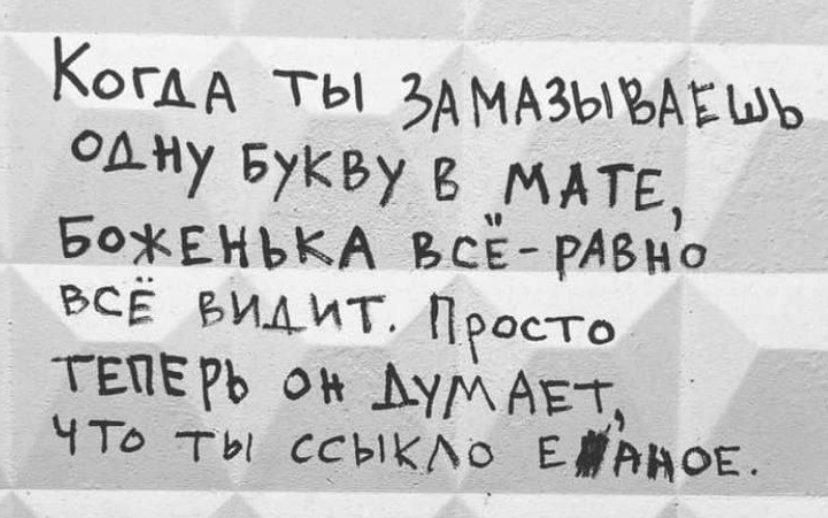 Когда ты замазываешь
одну букву в мате,
Боженька всё-равно
всё видит. Просто
теперь он думает,
что ты ссыкло е▮аное.